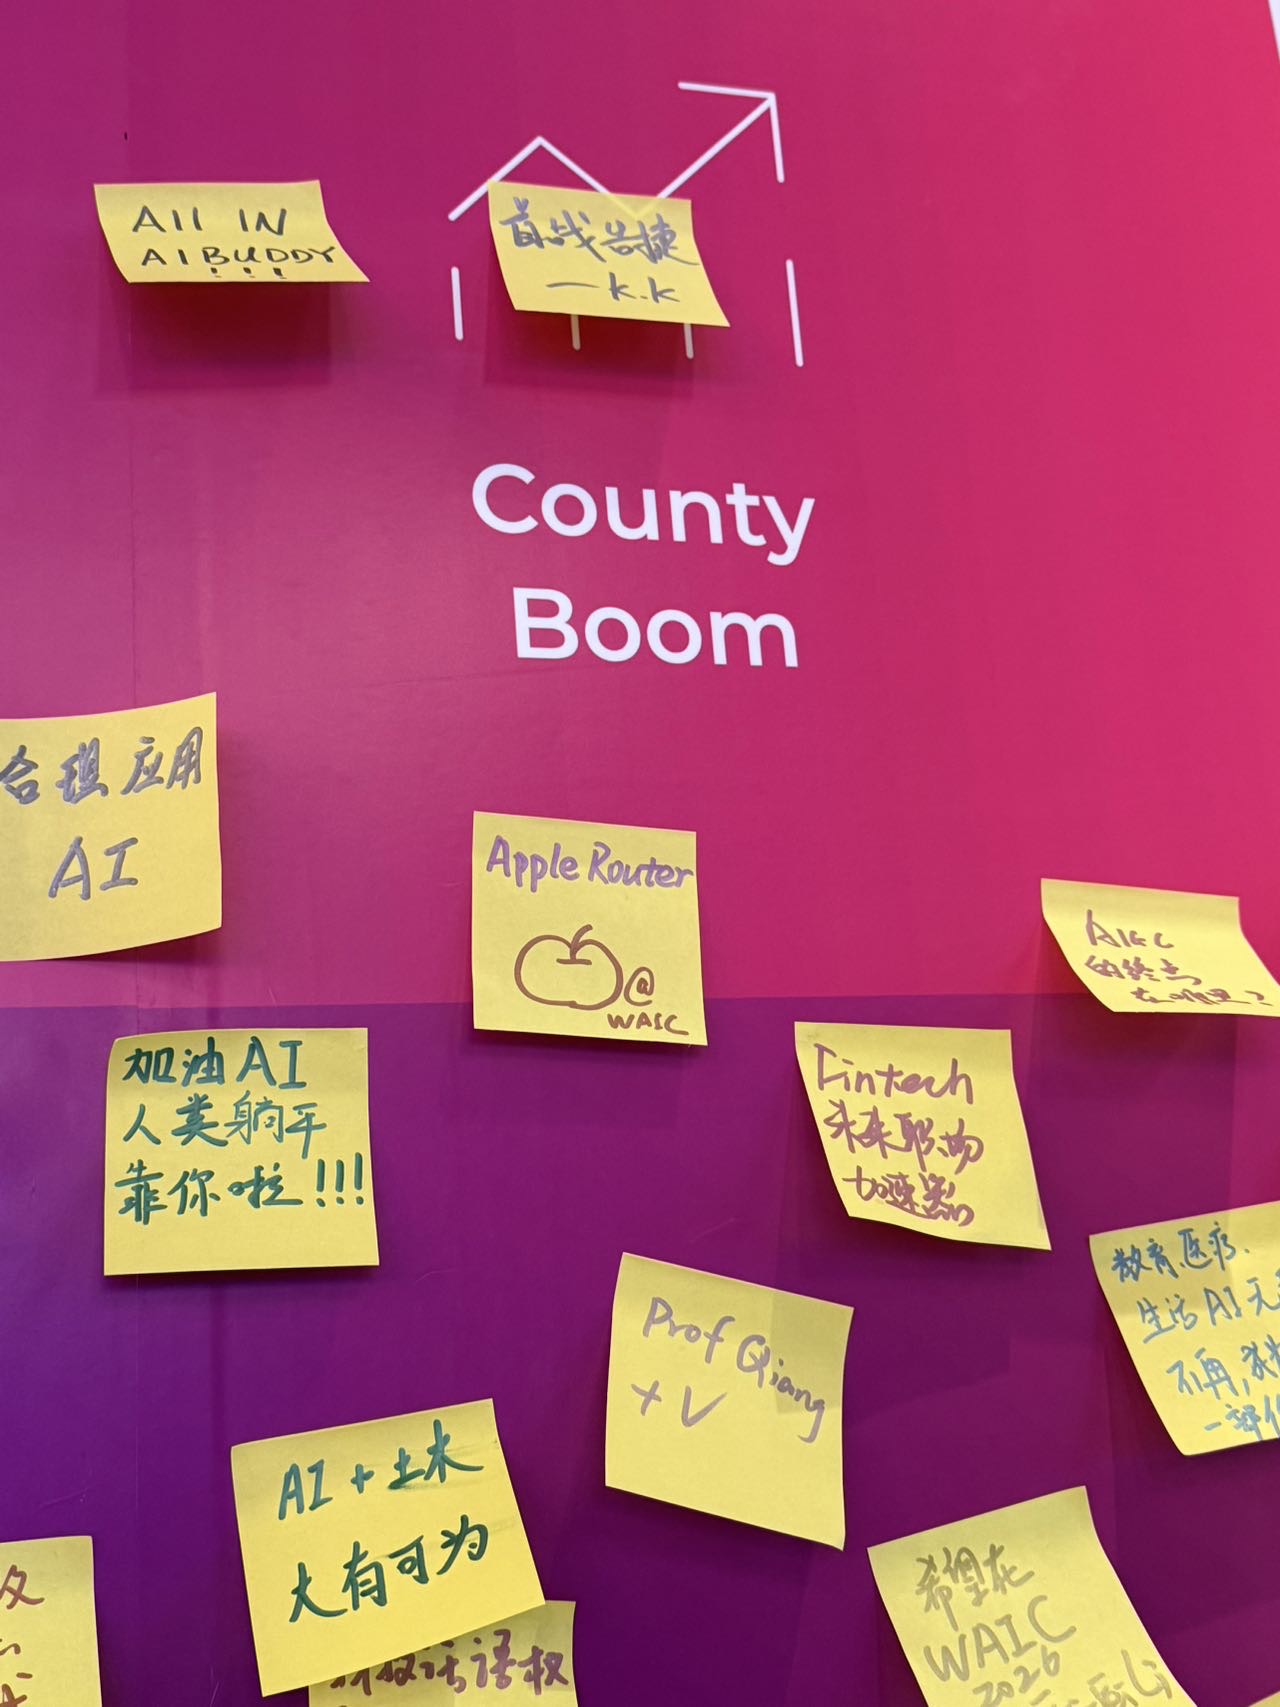 All IN
AIBUDDY
!!!
首战告捷
—K.K
County
Boom
合理应用
AI
Apple Router
@
WAIC
AIGC
的终点
在哪里?
加油AI
人类躺平
靠你啦!!!
Fintech
未来职场
加速器
教育,医疗.
生活AI无
不再,
一部
Prof Qiang
+ V
AI + 土木
大有可为
话语权
希望在
WAIC
2026